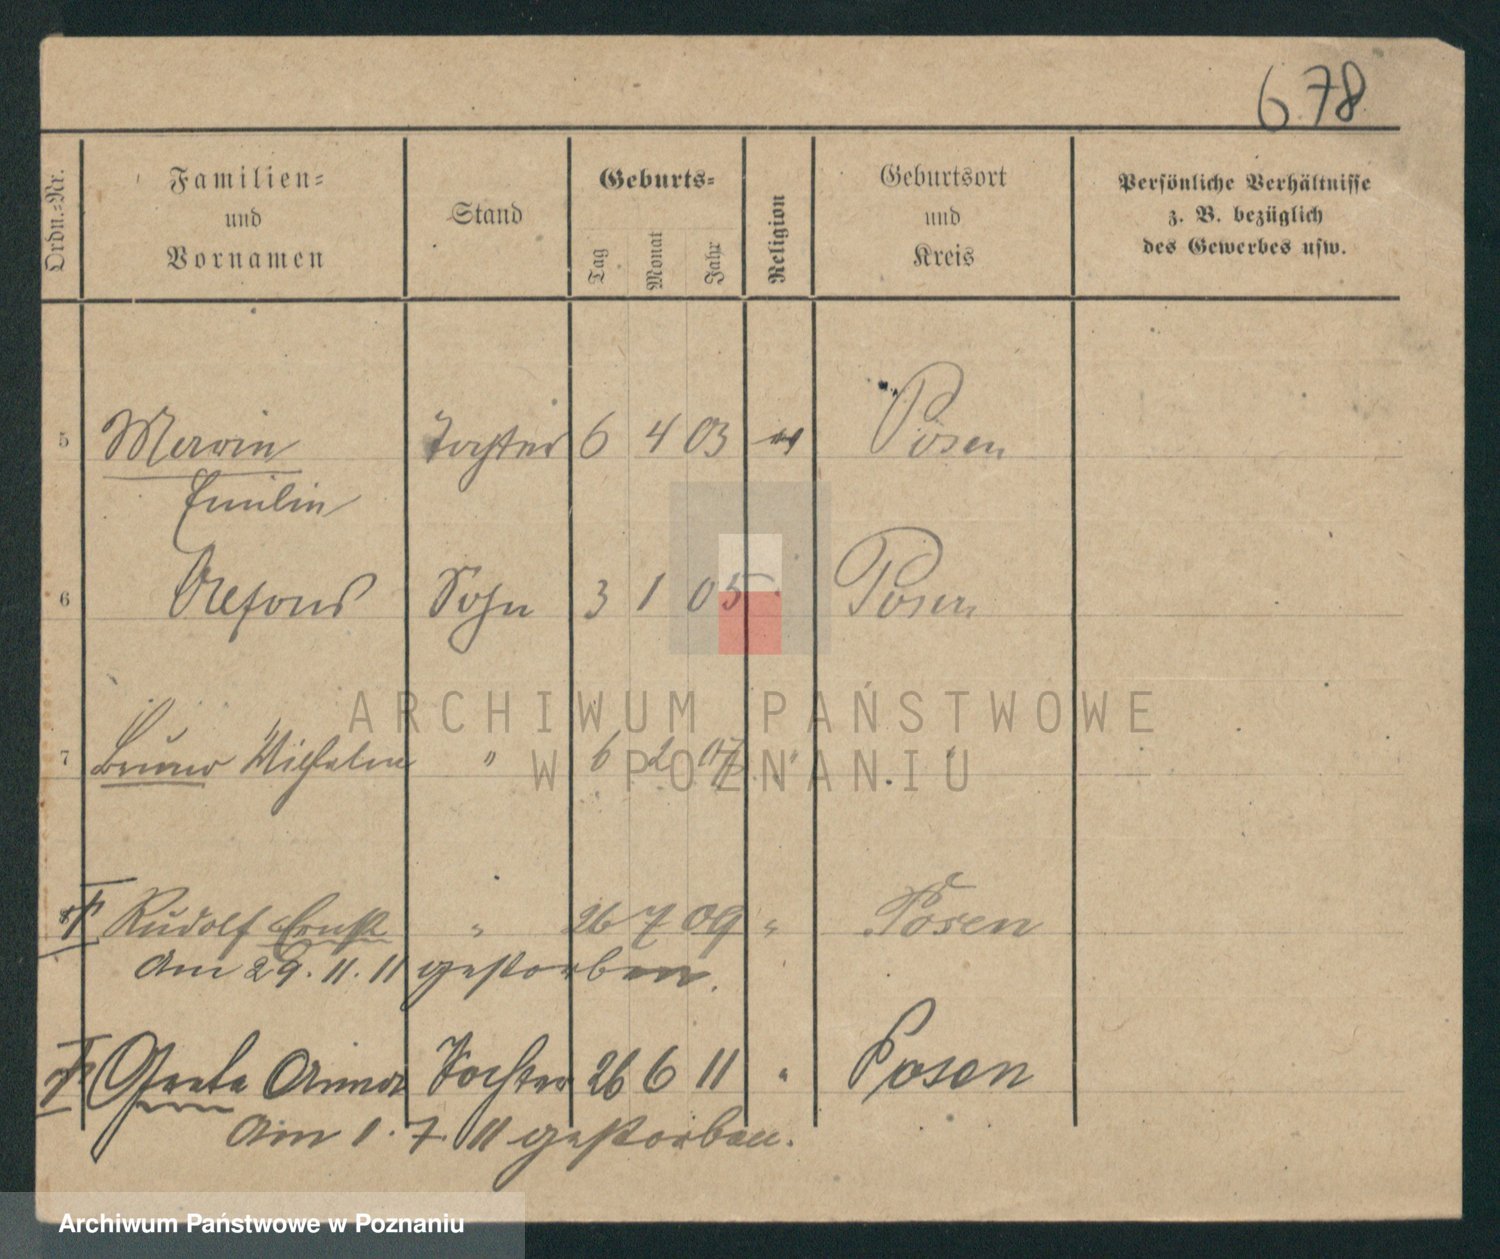 678
Ordn.-Nr.
Familien-
und
Vornamen
Stand
Geburts-
Tag
Monat
Jahr
Religion
Geburtsort
und
Kreis
Persönliche Verhältnisse
z. B. bezüglich
des Gewerbes usw.
5 Tochter 6 4 03 Posen
Emilie
6 Alfons Sohn 3 1 05 " Posen
ARCHIWUM PAŃSTWOWE
7 Bruno Wilhelm " 6 2 07 " "
W POZNANIU
8 Rudolf Ernst " 26 7 09 " Posen
Am 29. 11. 11 gestorben.
Greta Anna Tochter 26 6 11 " Posen
Am 1. 7. 11 gestorben.
Archiwum Państwowe w Poznaniu